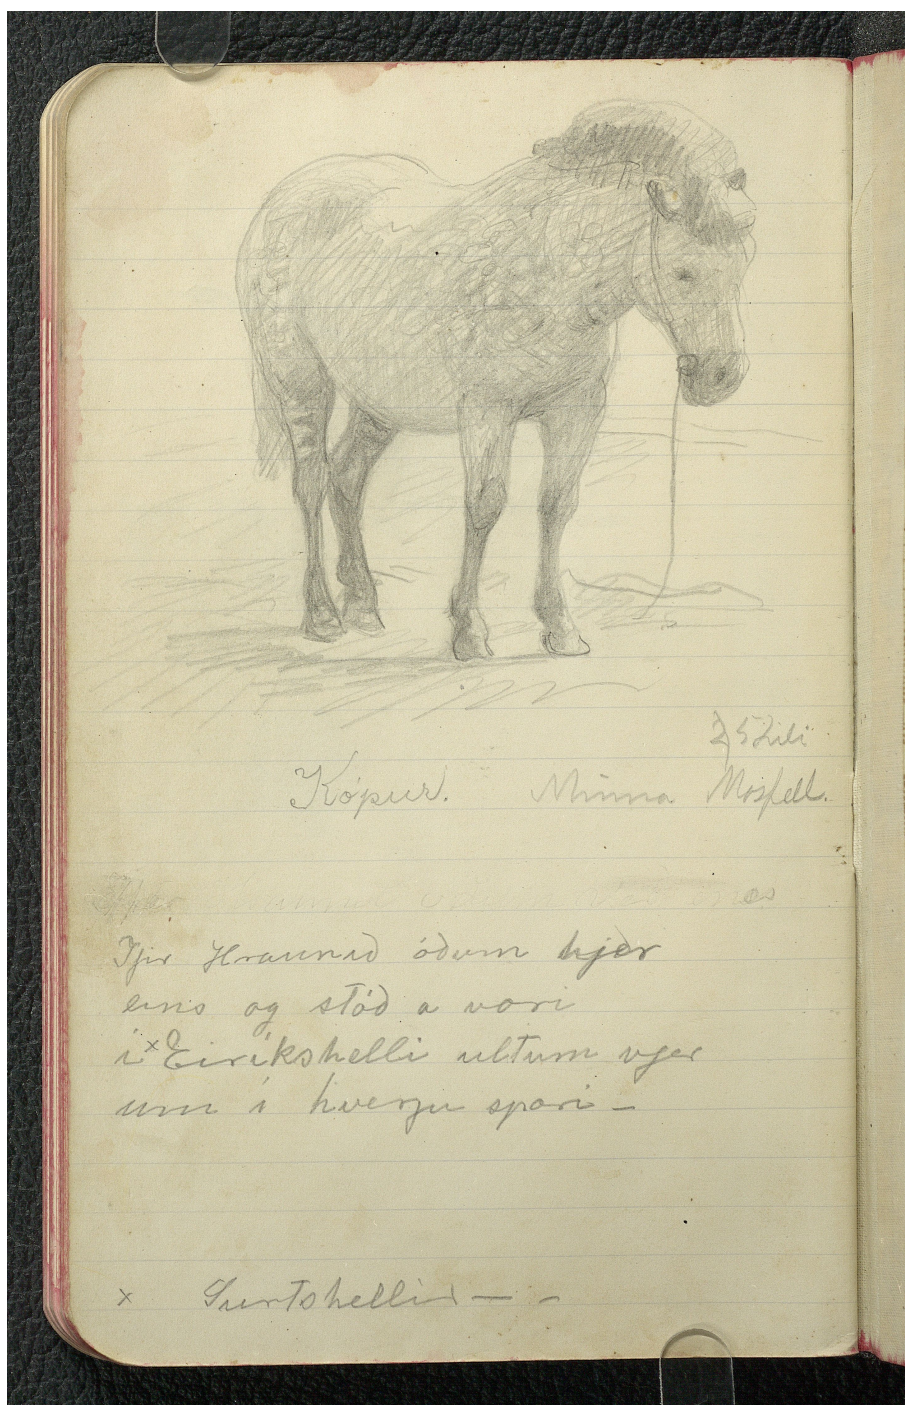 25 Júli
Kópur. Minna Mosfell.
Yfir Hraunið óðum hjer
eins og stóð a vori
í × Eiríkshelli ultum vjer
um í hverju spori –
× Surtshellir — –